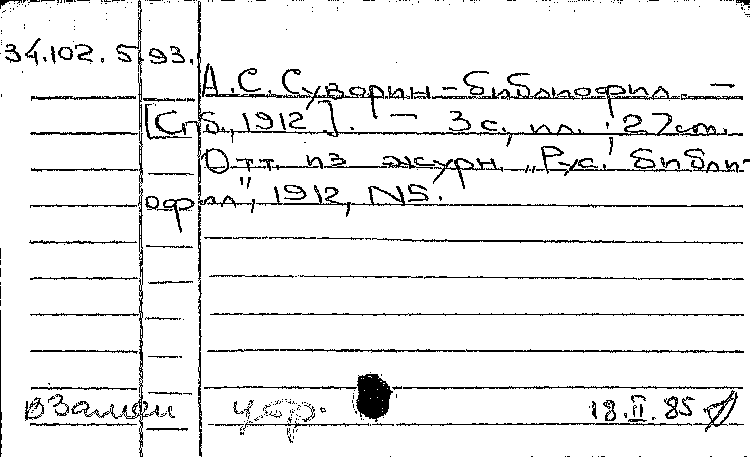 34.102.5.93.
А.С. Суворин - библиофил. -
[Спб., 1912]. - 3 с., ил. ; 27 см.
Отт. из журн. „Рус. библи-
офил", 1912, N5.
взамен
18.II.85